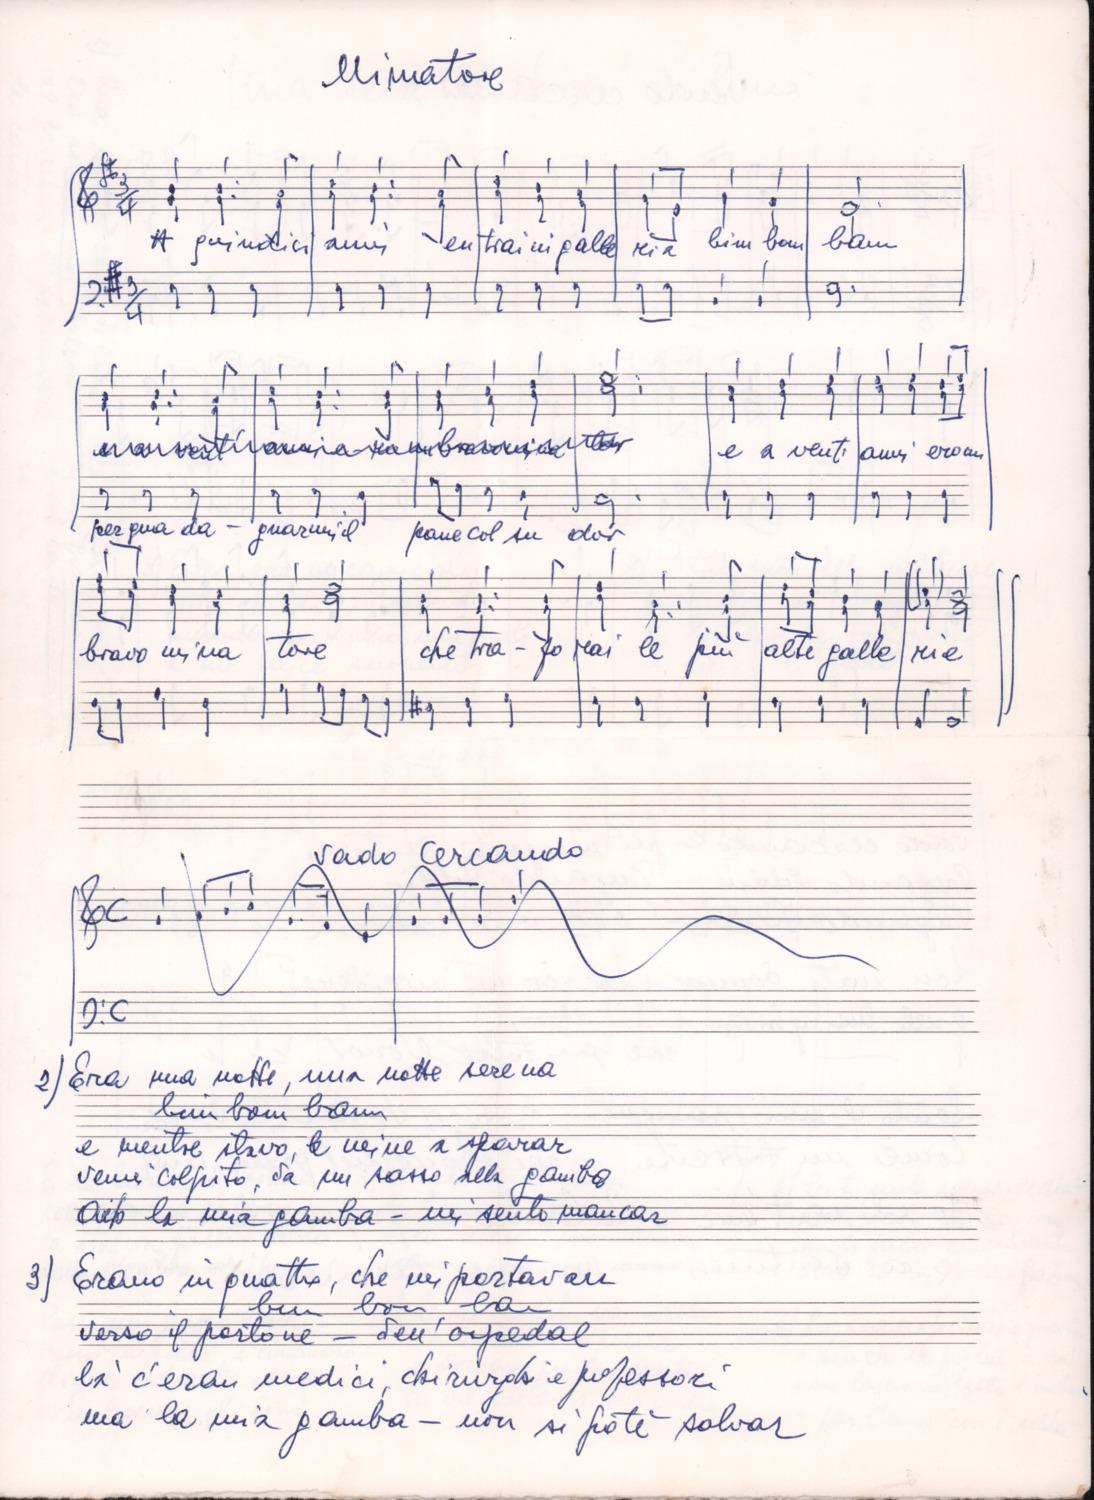 Minatore
3/4
A quindici anni entrai in galle ria bim bom bam
3/4
e a venti anni erom
per gua da - gnarmi il pane col su dor
bravo mina tore che tra - fo rai le più alte galle rie
Vado Cercando
C
C
2) Era una notte, una notte serena
bim bom bam
e mentre stavo, le mine a sparar
venni colpito, da un sasso alla gamba
la mia gamba - mi sento mancar
3) Erano in quattro, che mi portavan
bim bom bam
verso il portone - dell'ospedal
là c'eran medici, chirurghi e professori
ma la mia gamba - non si potè salvar